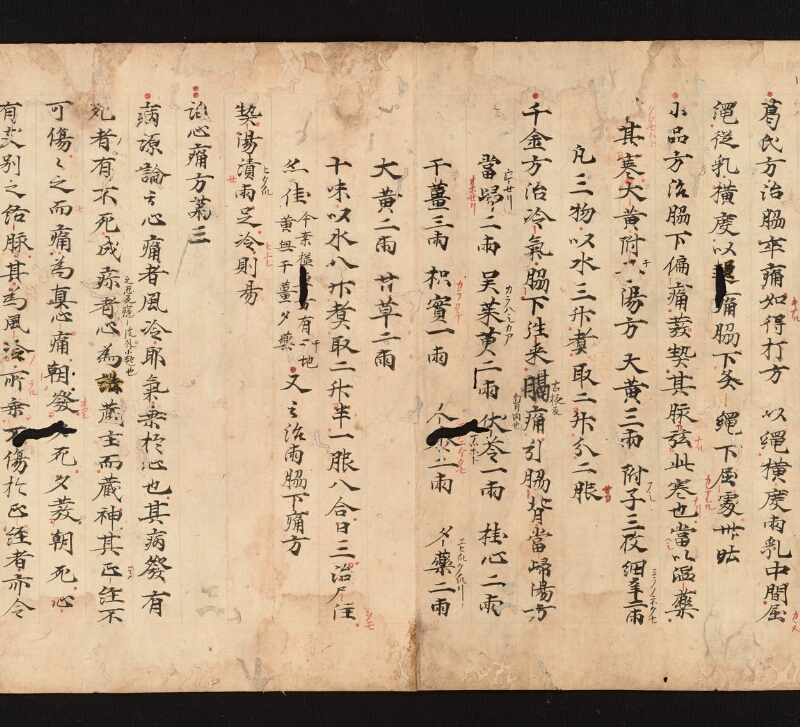 葛氏方治脇卒痛如得打方 以縄横度両乳中間屈
縄従乳横度以趍痛脇下灸縄下屈處卅壮
小品方治脇下偏痛發熱其脉弦此寒也當以温藥
下其寒大黄附子湯方 大黄三両 附子三枚 細辛二両
凡三物以水三升煮取二升分二服
千金方治冷氣脇下往来膈痛引脇背當歸湯方
當歸二両 呉茱萸二両 伏苓一両 桂心二両
干薑三両 枳實一両 人参二両 夕藥二両
大黄二両 甘草二両
十味以水八升煮取二升半一服八合日三治尸注
亦佳 今案 方有干地黄無干薑夕藥 又云治両脇下痛方
熱湯漬両足冷則易
治心痛方第三
病源論云心痛者風冷耶氣乗於心也其病發有
死者有不死成疹者心為諸蔵主而蔵神其正経不
可傷々之而痛為真心痛朝發夕死夕發朝死心
有支別之絡脉其為風冷所乗不傷於正経者亦令